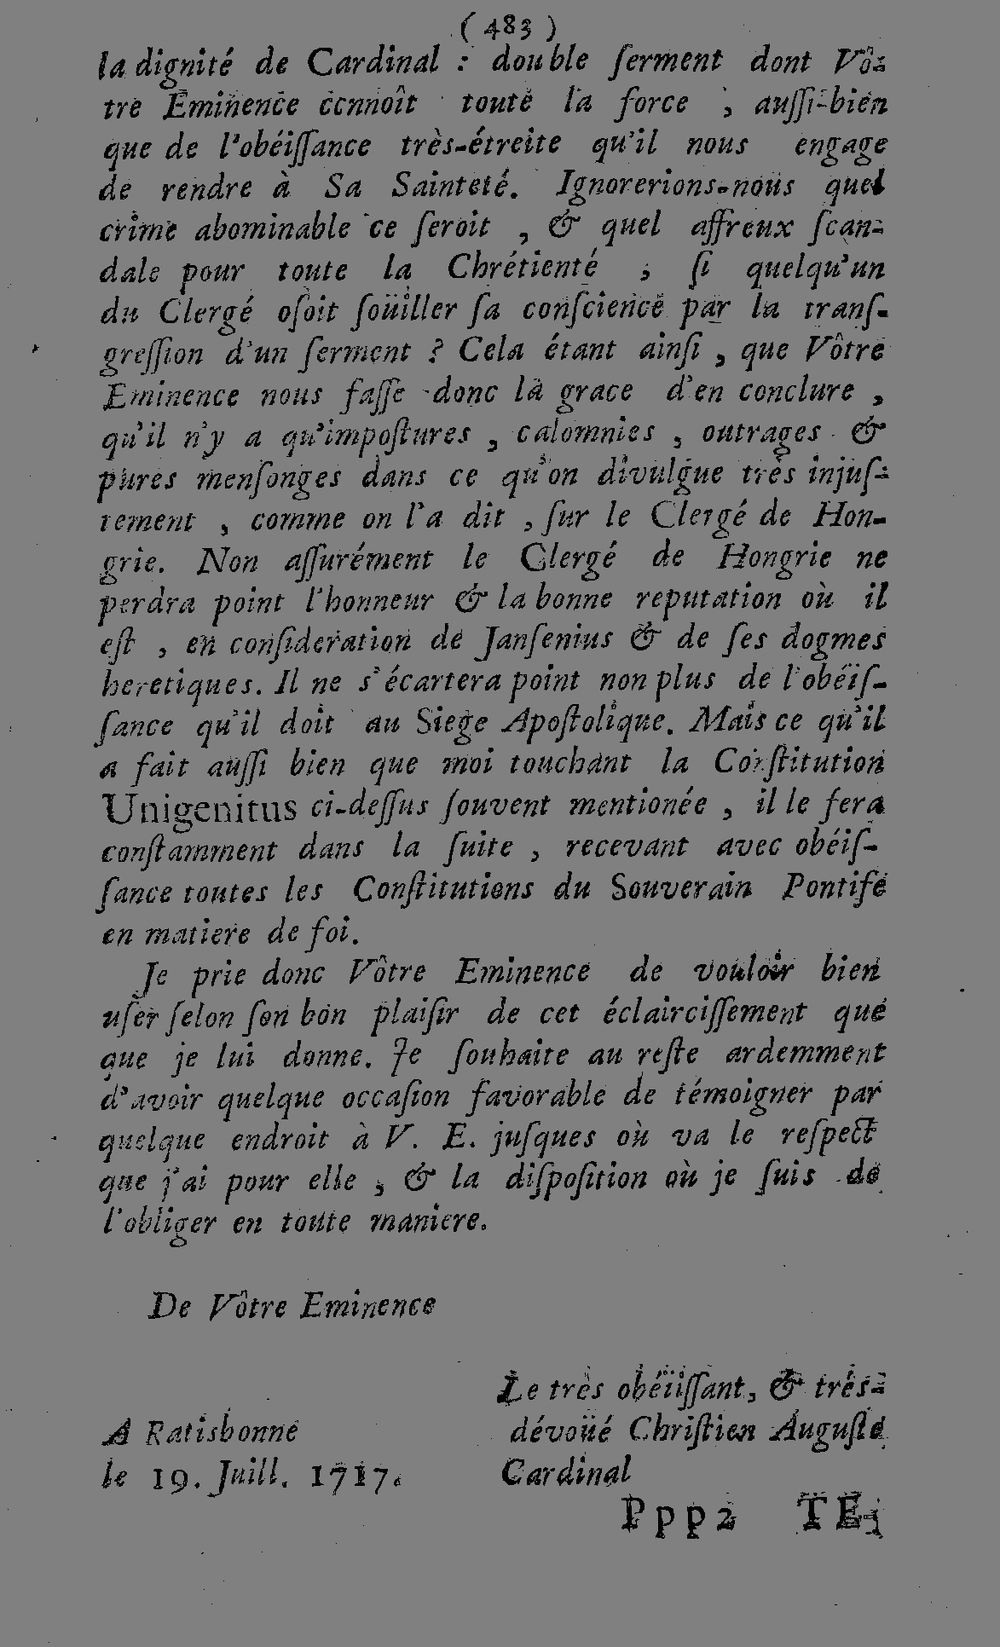 ( 483 )
la dignité de Cardinal : double ſerment dont Vô-
tre Eminence connoît toute la force , auſſi-bien
que de l'obéiſſance très-étreite qu'il nous engage
de rendre à Sa Sainteté. Ignorerions-nous quel
crime abominable ce ſeroit , & quel affreux ſcan-
dale pour toute la Chrétienté , ſi quelqu'un
du Clergé oſoit ſoüiller ſa conſcience par la tranſ-
greſſion d'un ſerment ? Cela étant ainſi , que Vôtre
Eminence nous faſſe donc la grace d'en conclure ,
qu'il n'y a qu'impoſtures , calomnies , outrages &
pures menſonges dans ce qu'on divulgue très injuſ-
tement , comme on l'a dit , ſur le Clergé de Hon-
grie. Non aſſurément le Clergé de Hongrie ne
perdra point l'honneur & la bonne reputation où il
eſt , en conſideration de Janſenius & de ſes dogmes
heretiques. Il ne s'écartera point non plus de l'obéïſ-
ſance qu'il doit au Siege Apoſtolique. Mais ce qu'il
a fait auſſi bien que moi touchant la Conſtitution
Unigenitus ci-deſſus ſouvent mentionée , il le fera
conſtamment dans la ſuite , recevant avec obéiſ-
ſance toutes les Conſtitutions du Souverain Pontife
en matiere de foi.
Je prie donc Vôtre Eminence de vouloir bien
uſer ſelon ſon bon plaiſir de cet éclairciſſement que
que je lui donne. Je ſouhaite au reſte ardemment
d'avoir quelque occaſion favorable de témoigner par
quelque endroit à V. E. juſques où va le reſpect
que j'ai pour elle , & la diſpoſition où je ſuis de
l'obliger en toute maniere.
De Vôtre Eminence
Le très obéiiſſant, & trés-
dévoüé Chriſtien Auguſte
Cardinal
A Ratisbonne
le 19. Juill. 1717.
Ppp2 TE-